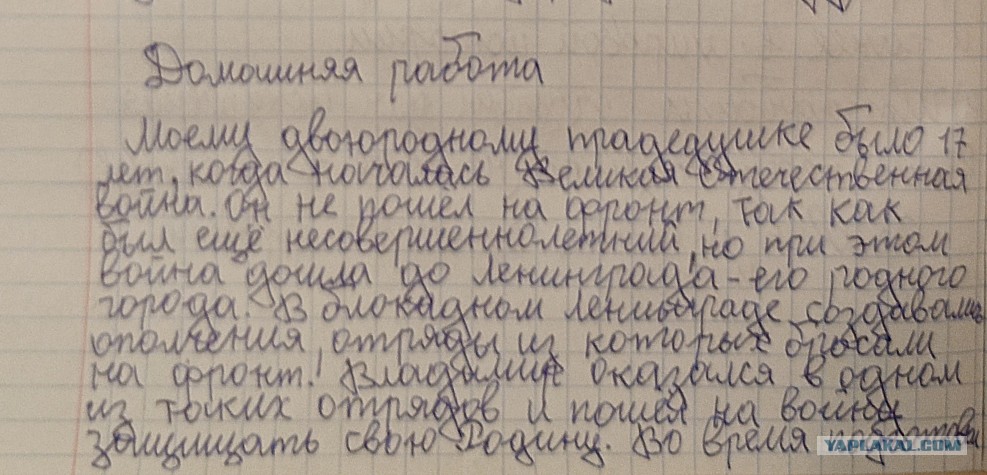 Домашняя работа
Моему двоюродному прадедушке было 17
лет, когда началась Великая Отечественная
война. Он не пошел на фронт, так как
был ещё несовершеннолетний, но при этом
война дошла до Ленинграда - его родного
города. В блокадном Ленинграде создавались
ополчения, отряды из которых бросали
на фронт. Владимир оказался в одном
из таких отрядов и пошел на войну
защищать свою Родину. Во время
YAPLAKAL.COM